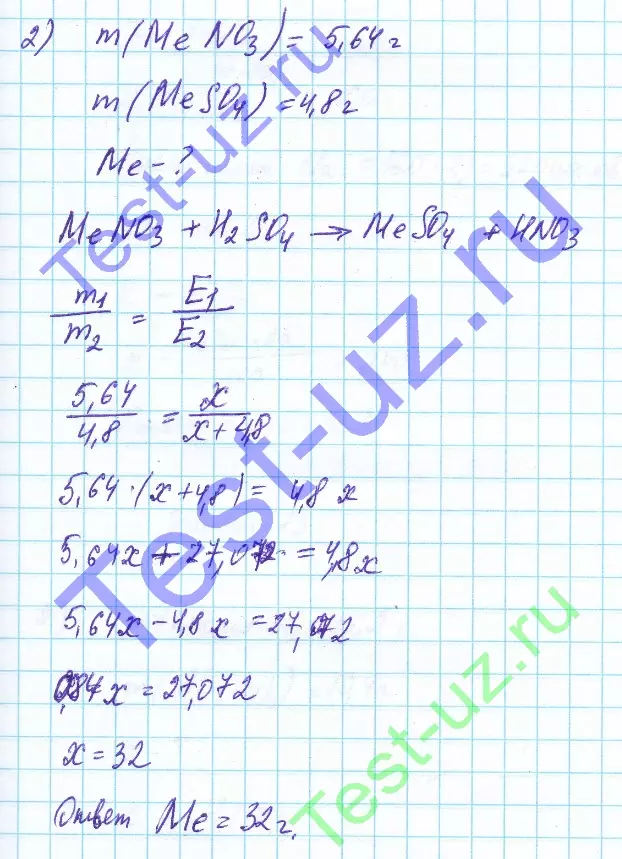 2) m(MeNO3) = 5,64 г
m(MeSO4) = 4,8 г
Me - ?
MeNO3 + H2SO4 → MeSO4 + HNO3
m1/m2 = E1/E2
5,64/4,8 = x/x+4,8
5,64·(x+4,8) = 4,8 x
5,64x + 27,072 = 4,8x
5,64x - 4,8x = 27,072
0,84x = 27,072
x = 32
Ответ Me = 32 г.
Test-uz.ru
Test-uz.ru
Test-uz.ru